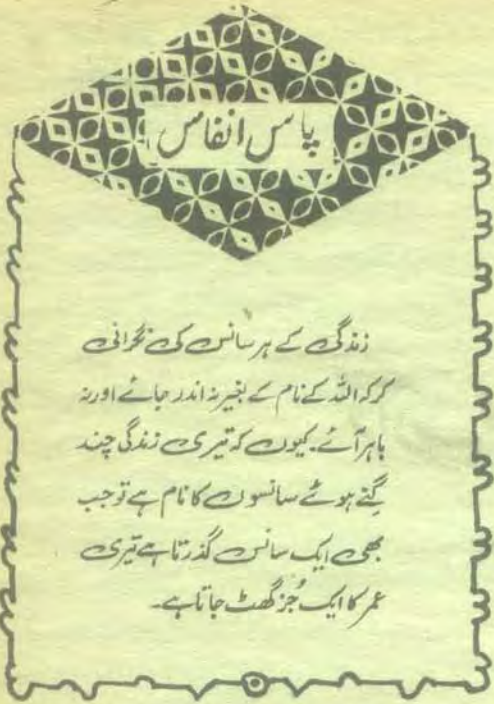 پاس انفاس
زندگی کے ہر سانس کی نگرانی
کر کہ اللہ کے نام کے بغیر نہ اندر جائے اور نہ
باہر آئے۔ کیوں کہ تیری زندگی چند
گِنے ہوئے سانسوں کا نام ہے تو جب
بھی ایک سانس گذرتا ہے تیری
عمر کا ایک جُز گھٹ جاتا ہے۔